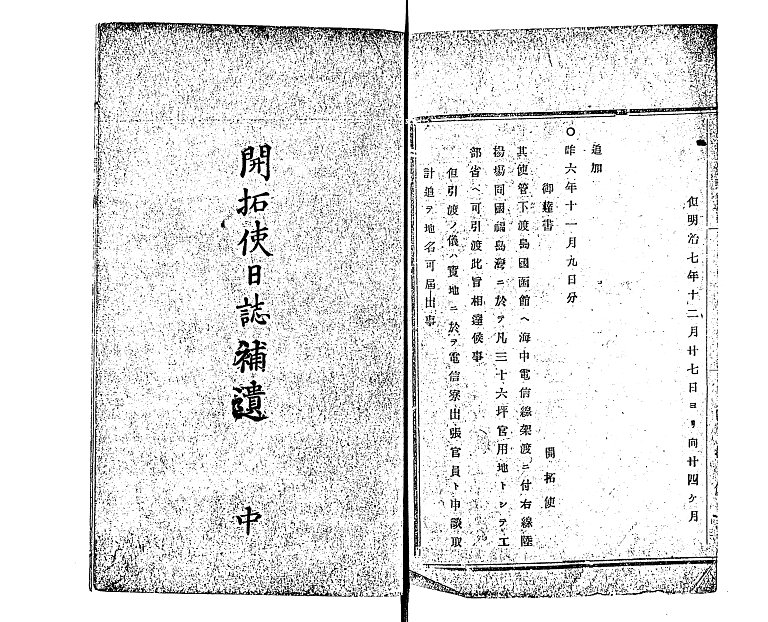 但明治七年十二月廿七日ヨリ向廿四ケ月
追加
○昨六年十一月九日分
御達書　開拓使
其使管下渡島國函館ヘ海中電信線架渡ニ付右線陸
揚場同國福島灣ニ於テ凡三十六坪官用地トシテ工
部省ヘ可引渡此旨相達候事
但引渡ノ儀ハ實地ニ於テ電信寮出張官員ト申談取
計追テ地名可届出事
開拓使日誌補遺　中